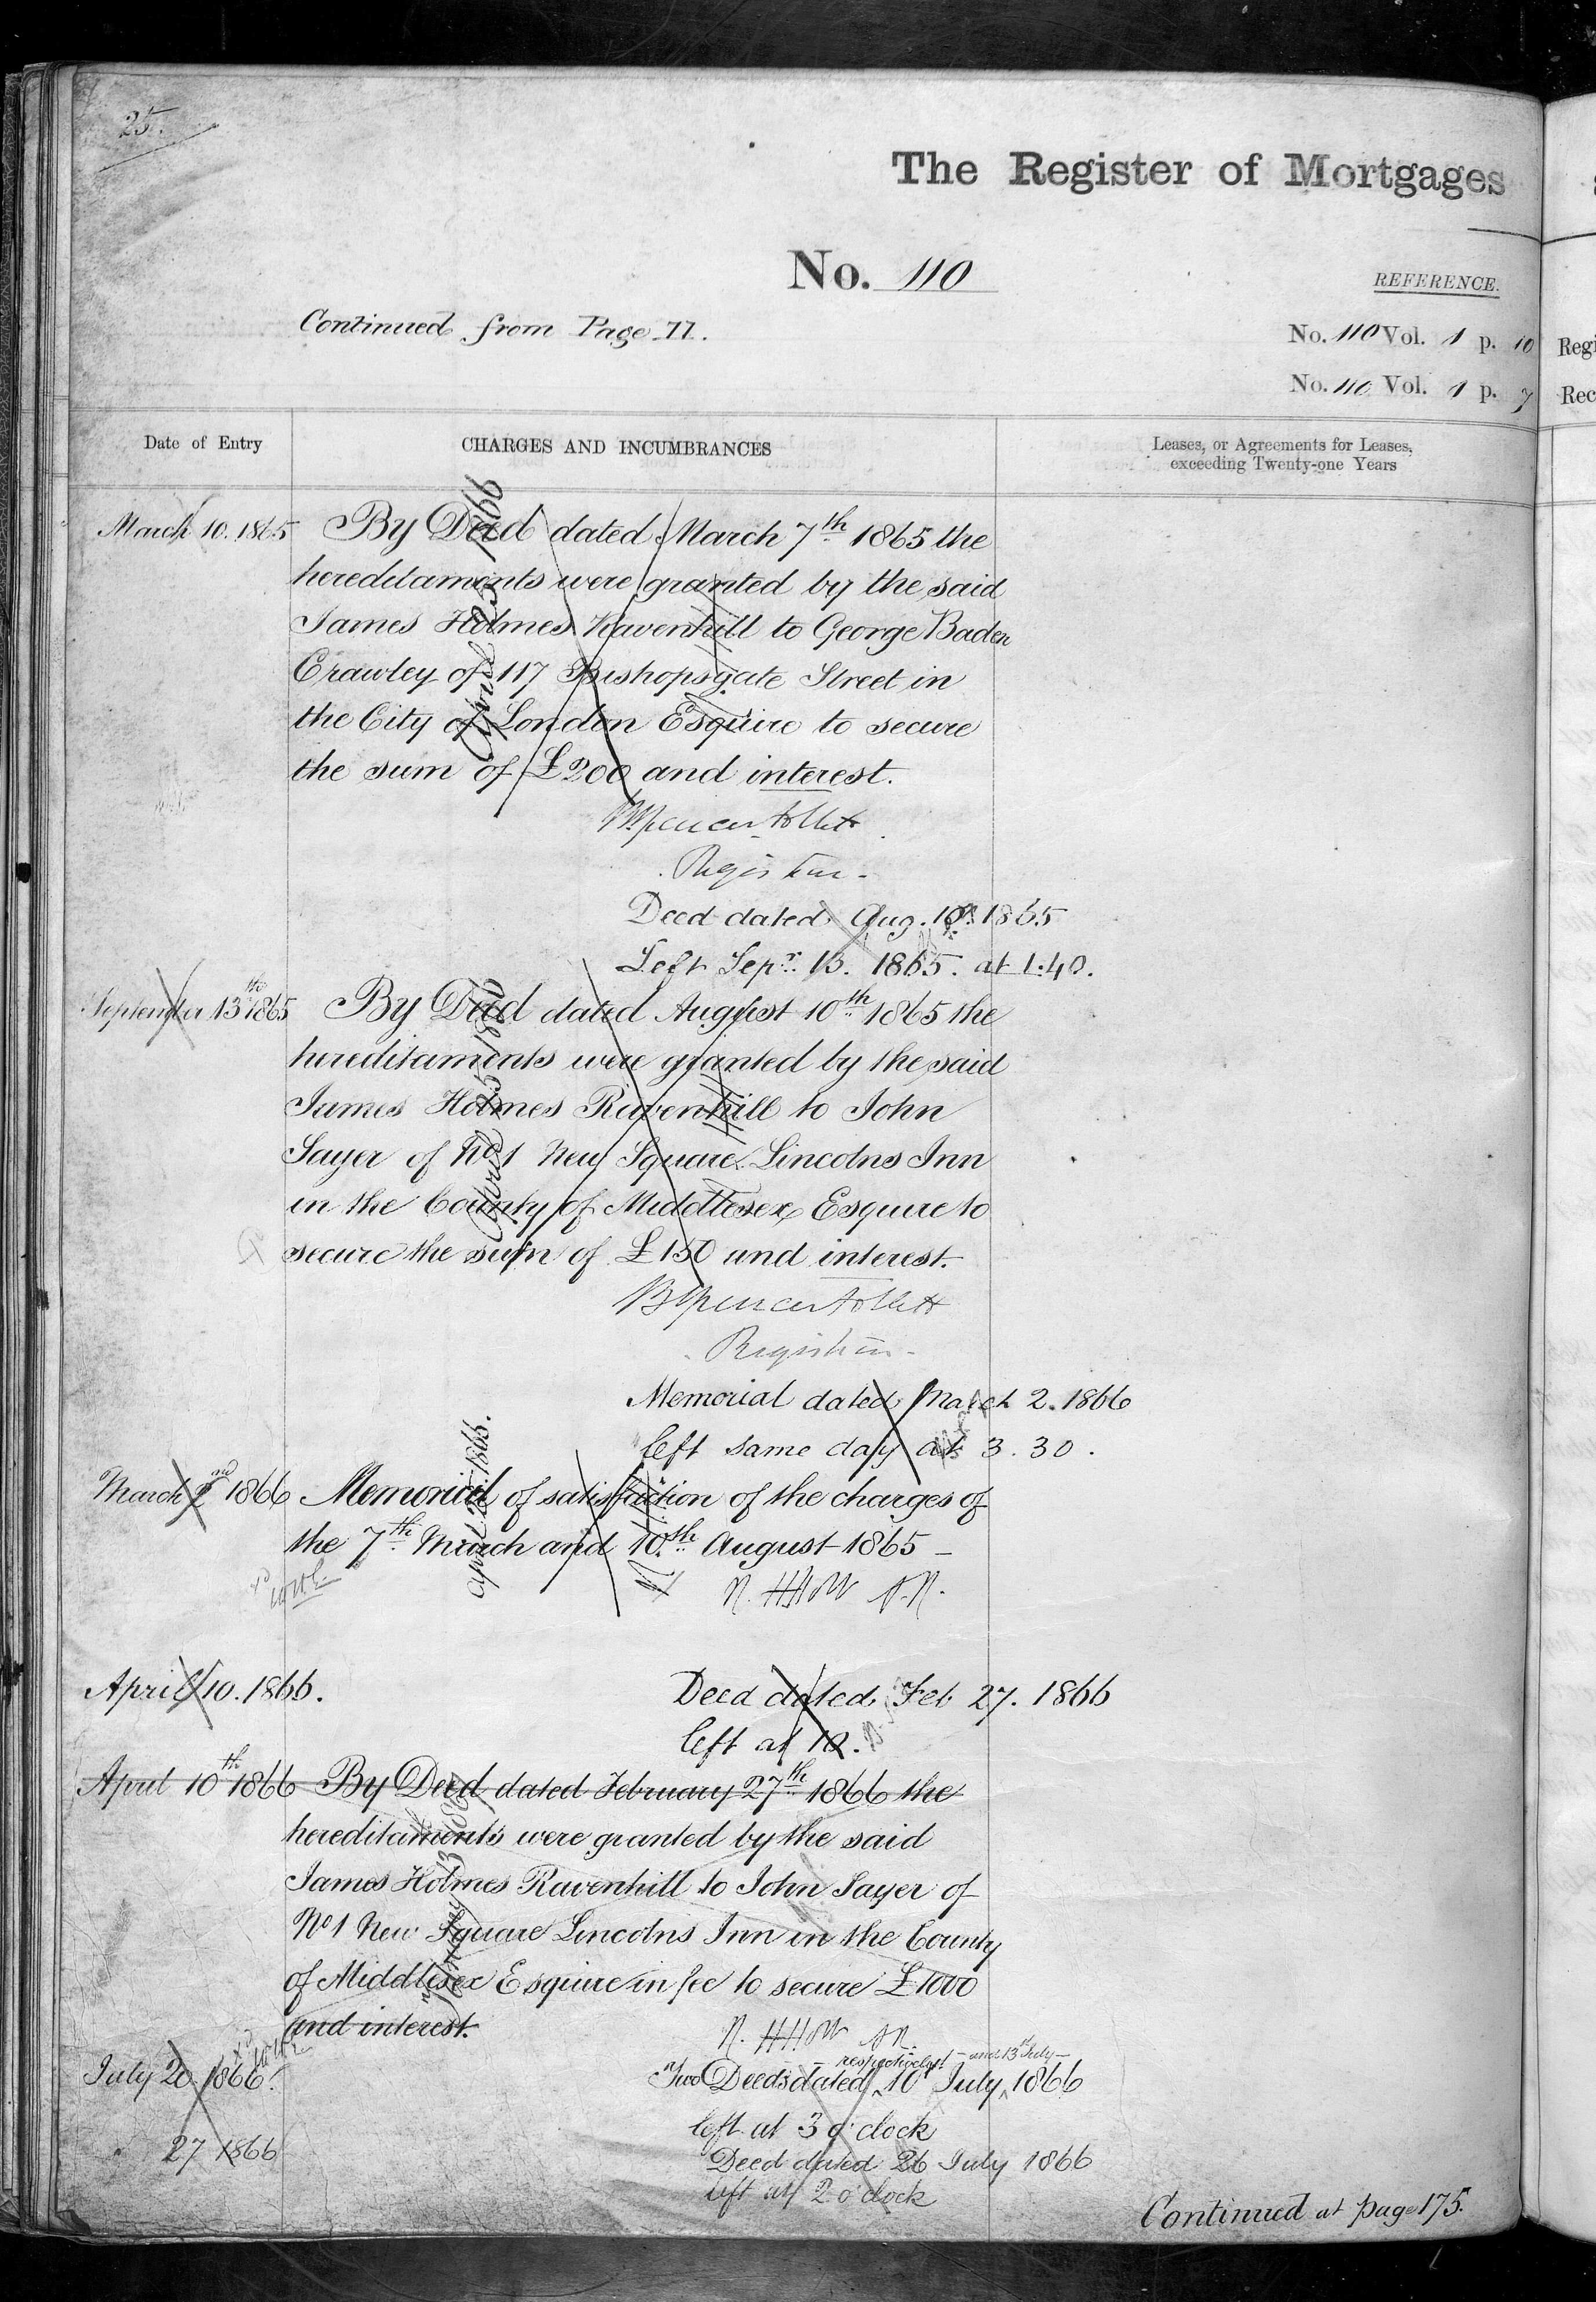 25.
The Register of Mortgages
No. 110
REFERENCE.
Continued from Page 11.
No. 110 Vol. 1 p. 10
No. 110 Vol. 1 p. 7
Regi
Rec
Date of Entry
CHARGES AND INCUMBRANCES
Leases, or Agreements for Leases,
exceeding Twenty-one Years
March 10. 1865 By Deed dated March 7th 1865 the
hereditaments were granted by the said
James Holmes Ravenhill to George Baden
Crawley of 117 Bishopsgate Street in
the City of London Esquire to secure
the sum of £200 and interest.
April 25 1866
BSpencer Follett
Registrar.
Deed dated Aug. 10th 1865
Left Sepr. 13. 1865. at 1.40.
September 13th 1865 By Deed dated August 10th 1865 the
hereditaments were granted by the said
James Holmes Ravenhill to John
Sayer of No 1 New Square Lincolns Inn
in the County of Middlesex Esquire to
secure the sum of £150 and interest.
April 25 1866
BSpencer Follett
Registrar
Memorial dated March 2. 1866
left same day at 3.30.
March 2nd 1866 Memorial of satisfaction of the charges of
the 7th March and 10th August 1865 –
April 1866.
April 10. 1866. Deed dated Feb 27. 1866
left at 12.
April 10th 1866 By Deed dated February 27th 1866 the
hereditaments were granted by the said
James Holmes Ravenhill to John Sayer of
No 1 New Square Lincolns Inn in the County
of Middlesex Esquire in fee to secure £1000
and interest.
respectively – and 13th July –
July 20. 1866. Two Deeds dated 10th July 1866
left at 3 o'clock
27 1866 Deed dated 26 July 1866
left at 2 o'clock
Continued at page 175.